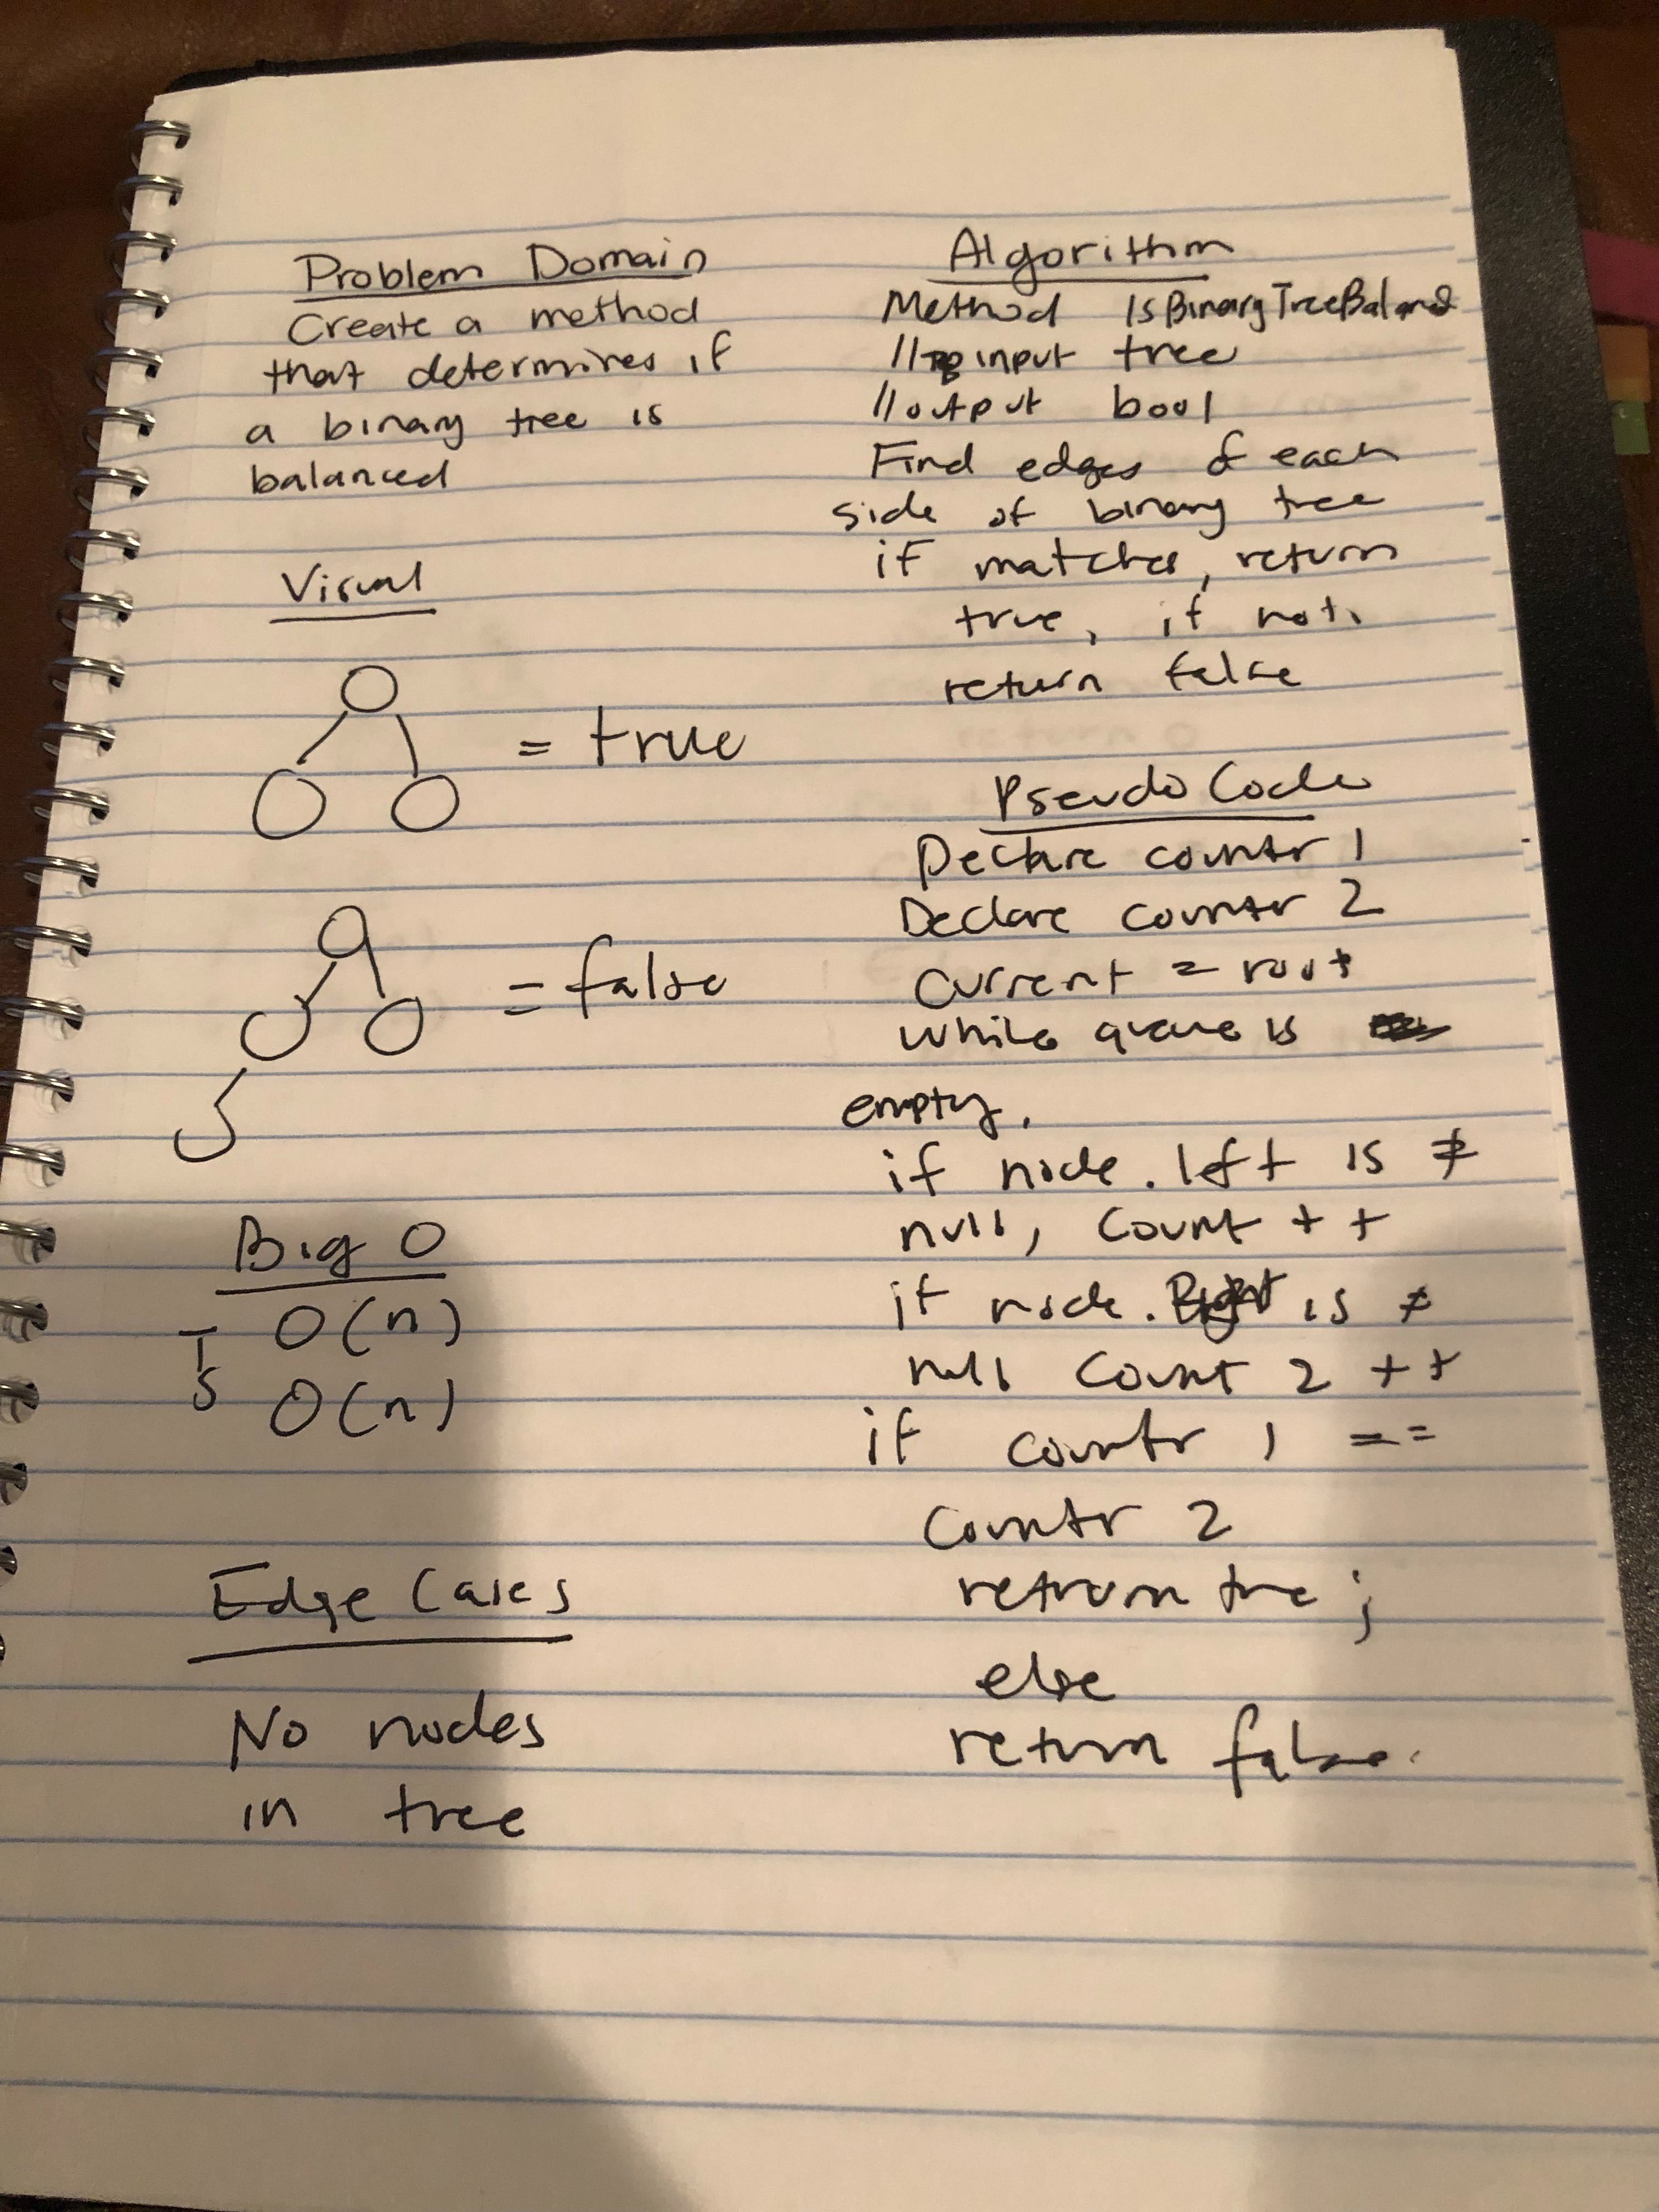 Problem Domain
Create a method
that determines if
a binary tree is
balanced
Visual
= true
= false
Big O
T O(n)
S O(n)
Edge Cases
No nodes
in tree
Algorithm
Method IsBinaryTreeBalanced
// input tree
// output bool
Find edges of each
side of binary tree
if matches, return
true, if not,
return false
Pseudo Code
Declare counter 1
Declare counter 2
Current = root
while queue is
empty,
if node.left is ≠
null, Count ++
if node.Right is ≠
null Count 2 ++
if counter 1 ==
Counter 2
return true;
else
return false.